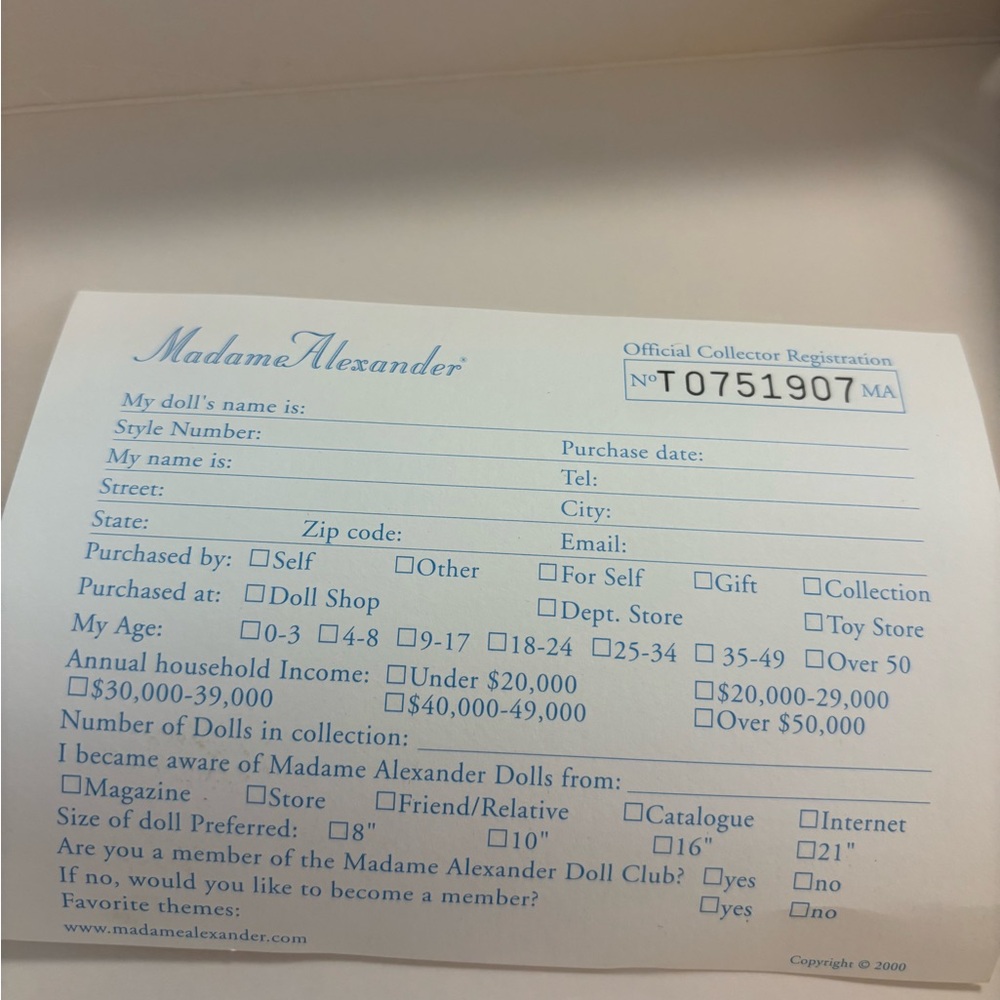 Madame Alexander®
Official Collector Registration
Nº T0751907 MA
My doll's name is:
Style Number: Purchase date:
My name is: Tel:
Street: City:
State: Zip code: Email:
Purchased by: ☐Self ☐Other ☐For Self ☐Gift ☐Collection
Purchased at: ☐Doll Shop ☐Dept. Store ☐Toy Store
My Age: ☐0-3 ☐4-8 ☐9-17 ☐18-24 ☐25-34 ☐ 35-49 ☐Over 50
Annual household Income: ☐Under $20,000 ☐$20,000-29,000
☐$30,000-39,000 ☐$40,000-49,000 ☐Over $50,000
Number of Dolls in collection:
I became aware of Madame Alexander Dolls from:
☐Magazine ☐Store ☐Friend/Relative ☐Catalogue ☐Internet
Size of doll Preferred: ☐8" ☐10" ☐16" ☐21"
Are you a member of the Madame Alexander Doll Club? ☐yes ☐no
If no, would you like to become a member? ☐yes ☐no
Favorite themes:
www.madamealexander.com
Copyright © 2000